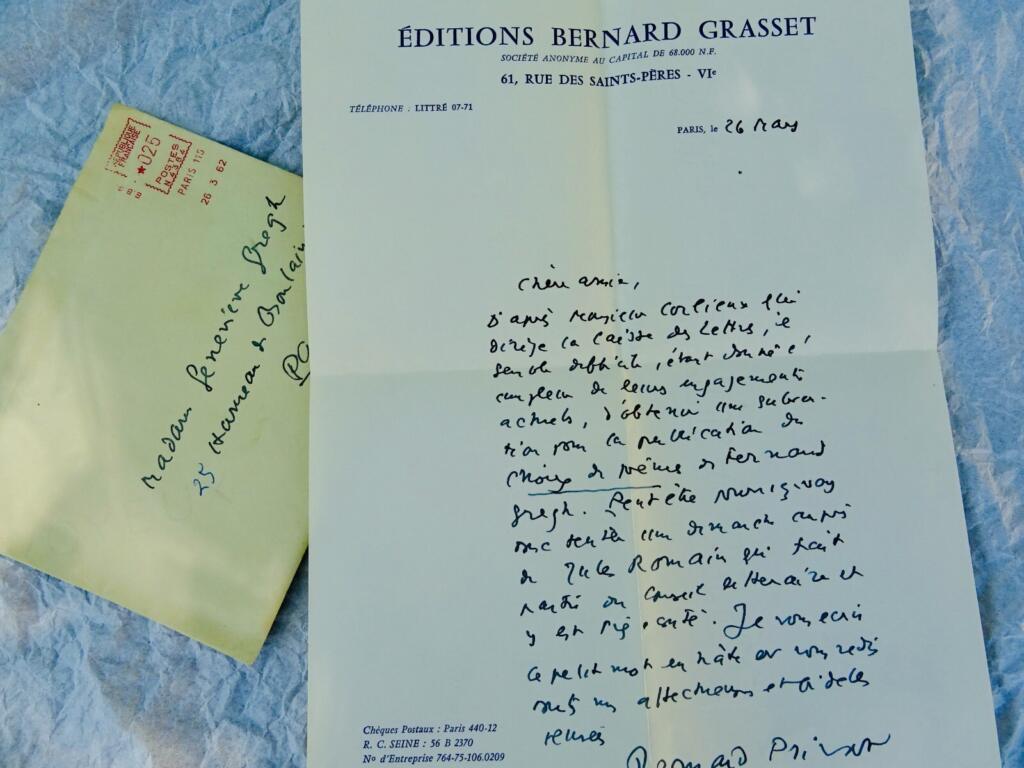 ÉDITIONS BERNARD GRASSET
SOCIÉTÉ ANONYME AU CAPITAL DE 68.000 N.F.
61, RUE DES SAINTS-PÈRES - VIe
TÉLÉPHONE : LITTRÉ 07-71
PARIS, le 26 Mars
Chère amie,
D'après Monsieur Corlieux qui
dirige la Caisse des Lettres, il
semble difficile, étant donné
l'ampleur de leurs engagements
actuels, d'obtenir une subven-
tion pour la publication du
Choix de poèmes de Fernand
Gregh. Peut être pourriez vous
tenter une démarche auprès
de Jules Romain qui fait
partie du Conseil littéraire et
y est très écouté. Je vous écris
ce petit mot en hâte et vous redis
mes affectueuses et fidèles
pensées
Bernard Privat
Chèques Postaux : Paris 440-12
R. C. SEINE : 56 B 2370
No d'Entreprise 764-75-106.0209
RÉPUBLIQUE
FRANÇAISE
★025
POSTES
N 4384
PARIS 115
26 3 62
Madame Geneviève Gregh
25 Hameau de Boulain